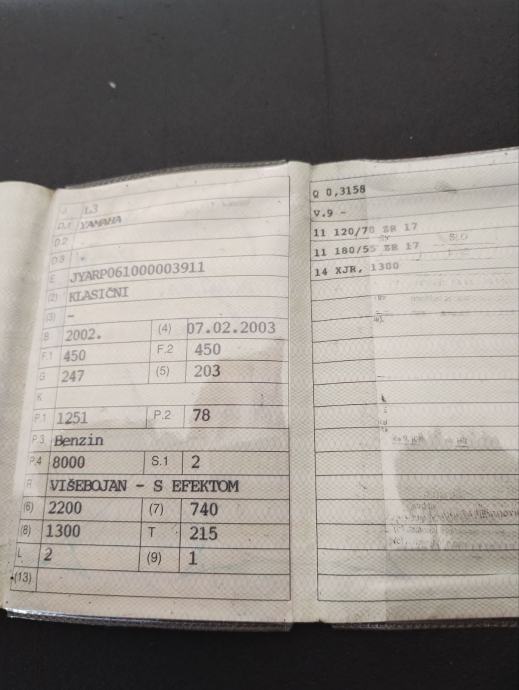 J L3
D.1 YAMAHA
D.2
D.3
E JYARP061000003911
(2) KLASIČNI
(3) -
B 2002. (4) 07.02.2003
F.1 450 F.2 450
G 247 (5) 203
K
P.1 1251 P.2 78
P.3 Benzin
P.4 8000 S.1 2
R VIŠEBOJAN - S EFEKTOM
(6) 2200 (7) 740
(8) 1300 T 215
L 2 (9) 1
(13)
Q 0,3158
V.9 -
11 120/70 ZR 17
11 180/55 ZR 17
14 XJR, 1300